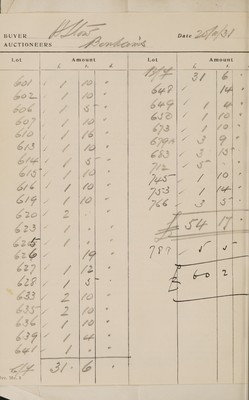 BUYER H Stow Date 20/10/31
AUCTIONEERS
Lot Amount
£ s. d.
601 1 10 "
602 1 10 "
606 1 5 "
607 1 10 "
610 1 16 "
613 1 10 "
614 1 5 "
615 1 10 "
616 1 10 "
619 1 10 "
620 2 " "
623
625 1 " "
626 19 "
627 1 12 "
628 1 5 "
633 2 10 "
635 2 10 "
636 1 10 "
639 1 4 "
641 1 " "
C/f 31 6 "
Lot Amount
£ s. d.
B/f 31 6
648 14 "
649 1 4
650 1 10 "
673 1 10 "
679 3 9
683 3 15
712 5 "
745 1 10 "
753 1 14 "
766 3 5
£ 54 17 "
787 5 5
£ 60 2